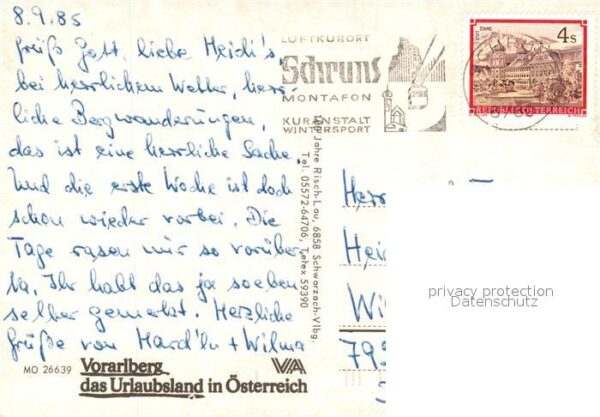 8.9.85
Grüß Gott, liebe Heidi's,
bei herrlichem Wetter, herr-
liche Bergwanderungen,
das ist eine herrliche Sache.
Und die erste Woche ist doch
schon wieder vorbei. Die
Tage rasen nur so vorüber
Ihr habt das ja soeben
selber gemerkt. Herzliche
Grüße von + Wilma
MO 26639
Vorarlberg
das Urlaubsland in Österreich
VA
LUFTKURORT
Schruns
MONTAFON
KURANSTALT
WINTERSPORT
Jahre Risch-Lau, 6858 Schwarzach-Vlbg.
Tel. 05572-64706, Telex 59390
4 S
REPUBLIK ÖSTERREICH
Herr
Hei
Wi
79
privacy protection
Datenschutz